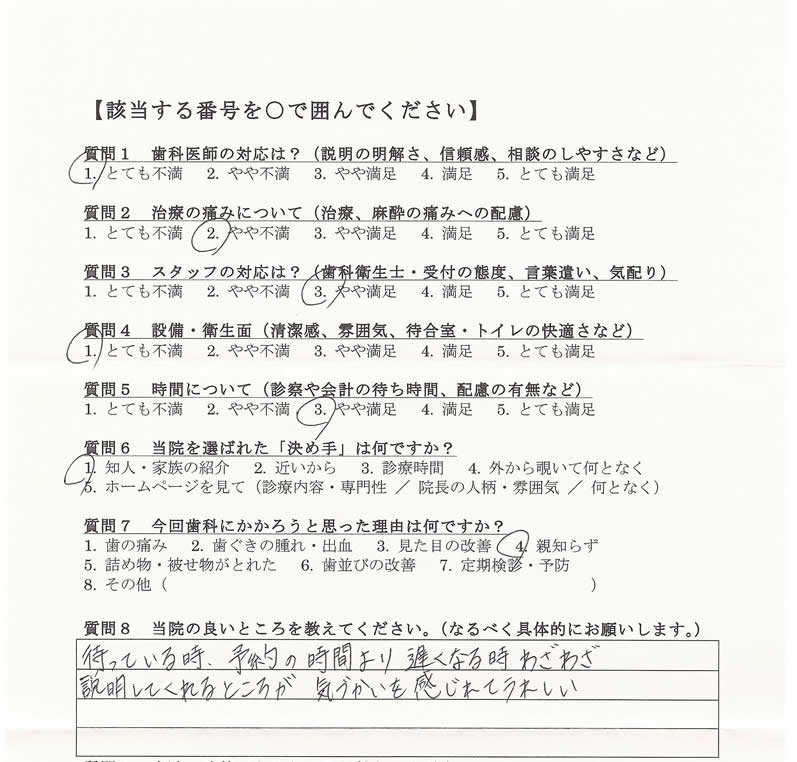 【該当する番号を○で囲んでください】
質問1 歯科医師の対応は？（説明の明解さ、信頼感、相談のしやすさなど）
1. とても不満 2. やや不満 3. やや満足 4. 満足 5. とても満足
質問2 治療の痛みについて（治療、麻酔の痛みへの配慮）
1. とても不満 2. やや不満 3. やや満足 4. 満足 5. とても満足
質問3 スタッフの対応は？（歯科衛生士・受付の態度、言葉遣い、気配り）
1. とても不満 2. やや不満 3. やや満足 4. 満足 5. とても満足
質問4 設備・衛生面（清潔感、雰囲気、待合室・トイレの快適さなど）
1. とても不満 2. やや不満 3. やや満足 4. 満足 5. とても満足
質問5 時間について（診察や会計の待ち時間、配慮の有無など）
1. とても不満 2. やや不満 3. やや満足 4. 満足 5. とても満足
質問6 当院を選ばれた「決め手」は何ですか？
1. 知人・家族の紹介 2. 近いから 3. 診療時間 4. 外から覗いて何となく
5. ホームページを見て（診療内容・専門性 ／ 院長の人柄・雰囲気 ／ 何となく）
質問7 今回歯科にかかろうと思った理由は何ですか？
1. 歯の痛み 2. 歯ぐきの腫れ・出血 3. 見た目の改善 4. 親知らず
5. 詰め物・被せ物がとれた 6. 歯並びの改善 7. 定期検診・予防
8. その他（ ）
質問8 当院の良いところを教えてください。（なるべく具体的にお願いします。）
待っている時、予約の時間より 遅くなる時 わざわざ
説明してくれるところが 気づかいを感じれてうれしい